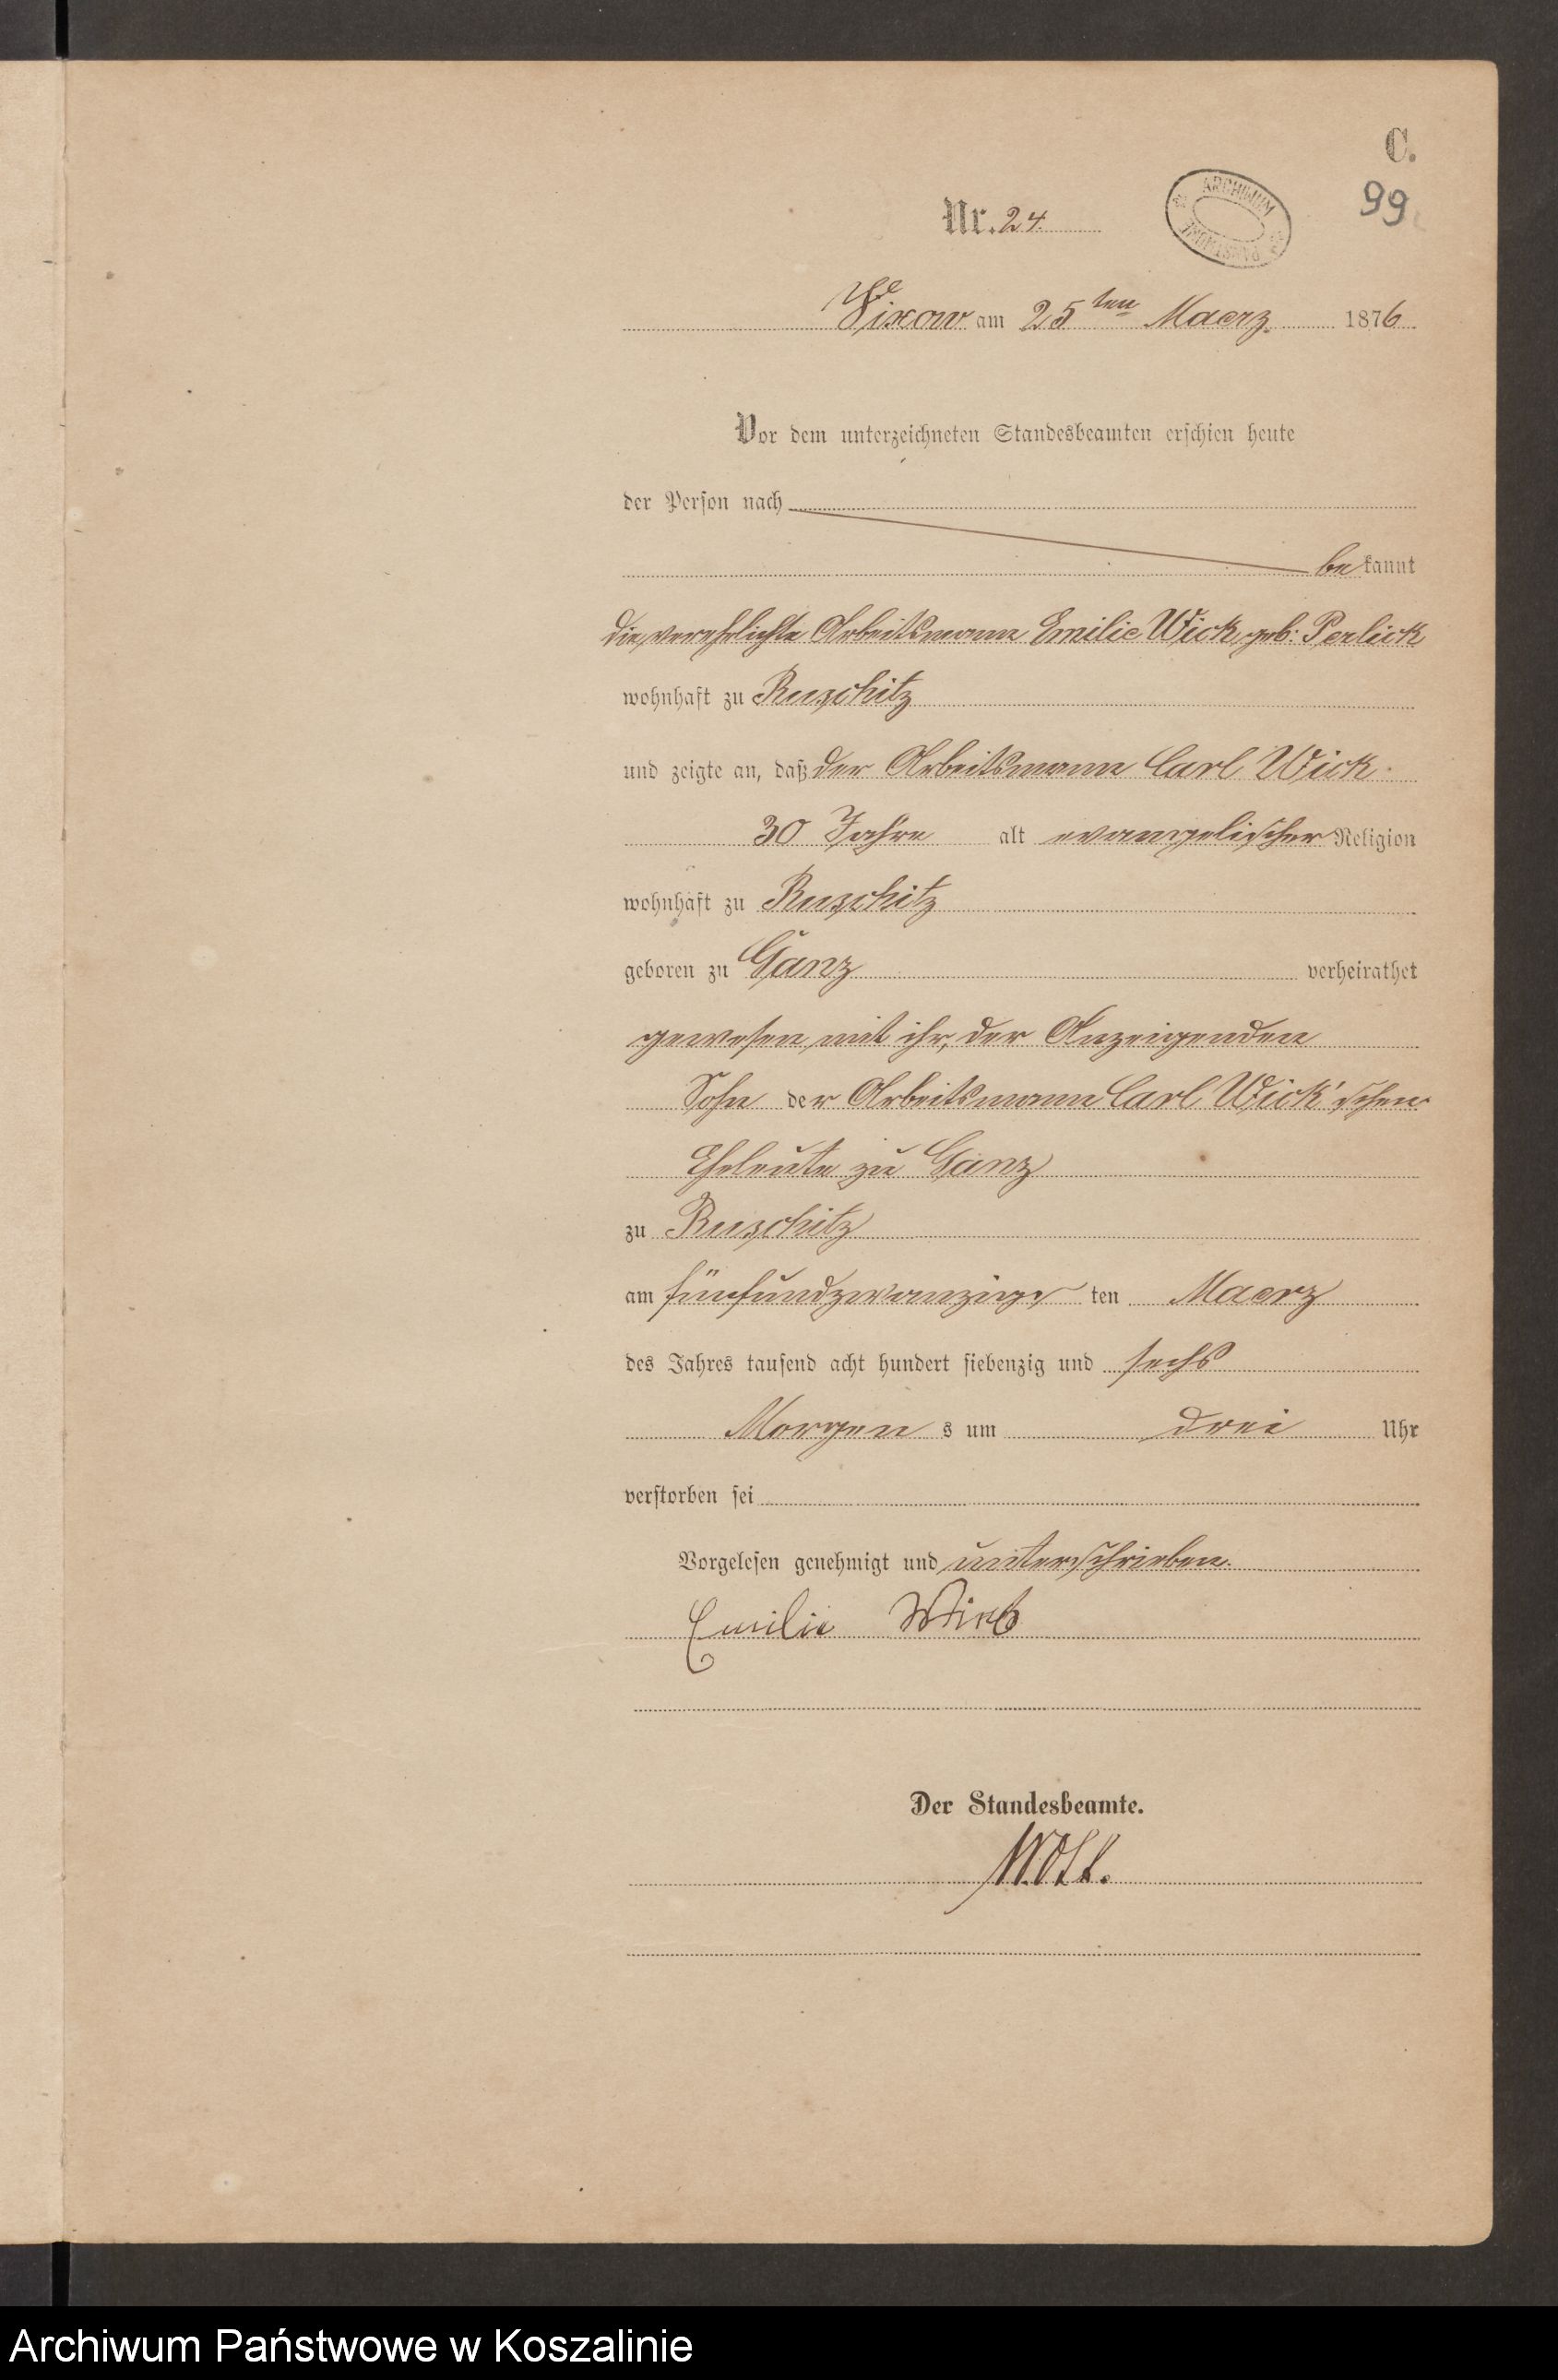 C.
99
Nr. 24.
ARCHIWUM
Vixow am 25ten Maerz 1876
Vor dem unterzeichneten Standesbeamten erschien heute
der Person nach
bekannt
die verehelichte Arbeitsmann Emilie Wick, geb: Perlick
wohnhaft zu Ruschitz
und zeigte an, daß der Arbeitsmann Carl Wick
30 Jahre alt evangelischer Religion
wohnhaft zu Ruschitz
geboren zu Ganz verheirathet
gewesen mit ihr, der Anzeigenden
Sohn der Arbeitsmann Carl Wick'schen
Eheleute zu Ganz
zu Ruschitz
am fünfundzwanzigsten Maerz
des Jahres tausend acht hundert siebenzig und sechs
Morgens um drei Uhr
verstorben sei
Vorgelesen genehmigt und unterschrieben.
Emilie Wick
Der Standesbeamte.
Archiwum Państwowe w Koszalinie